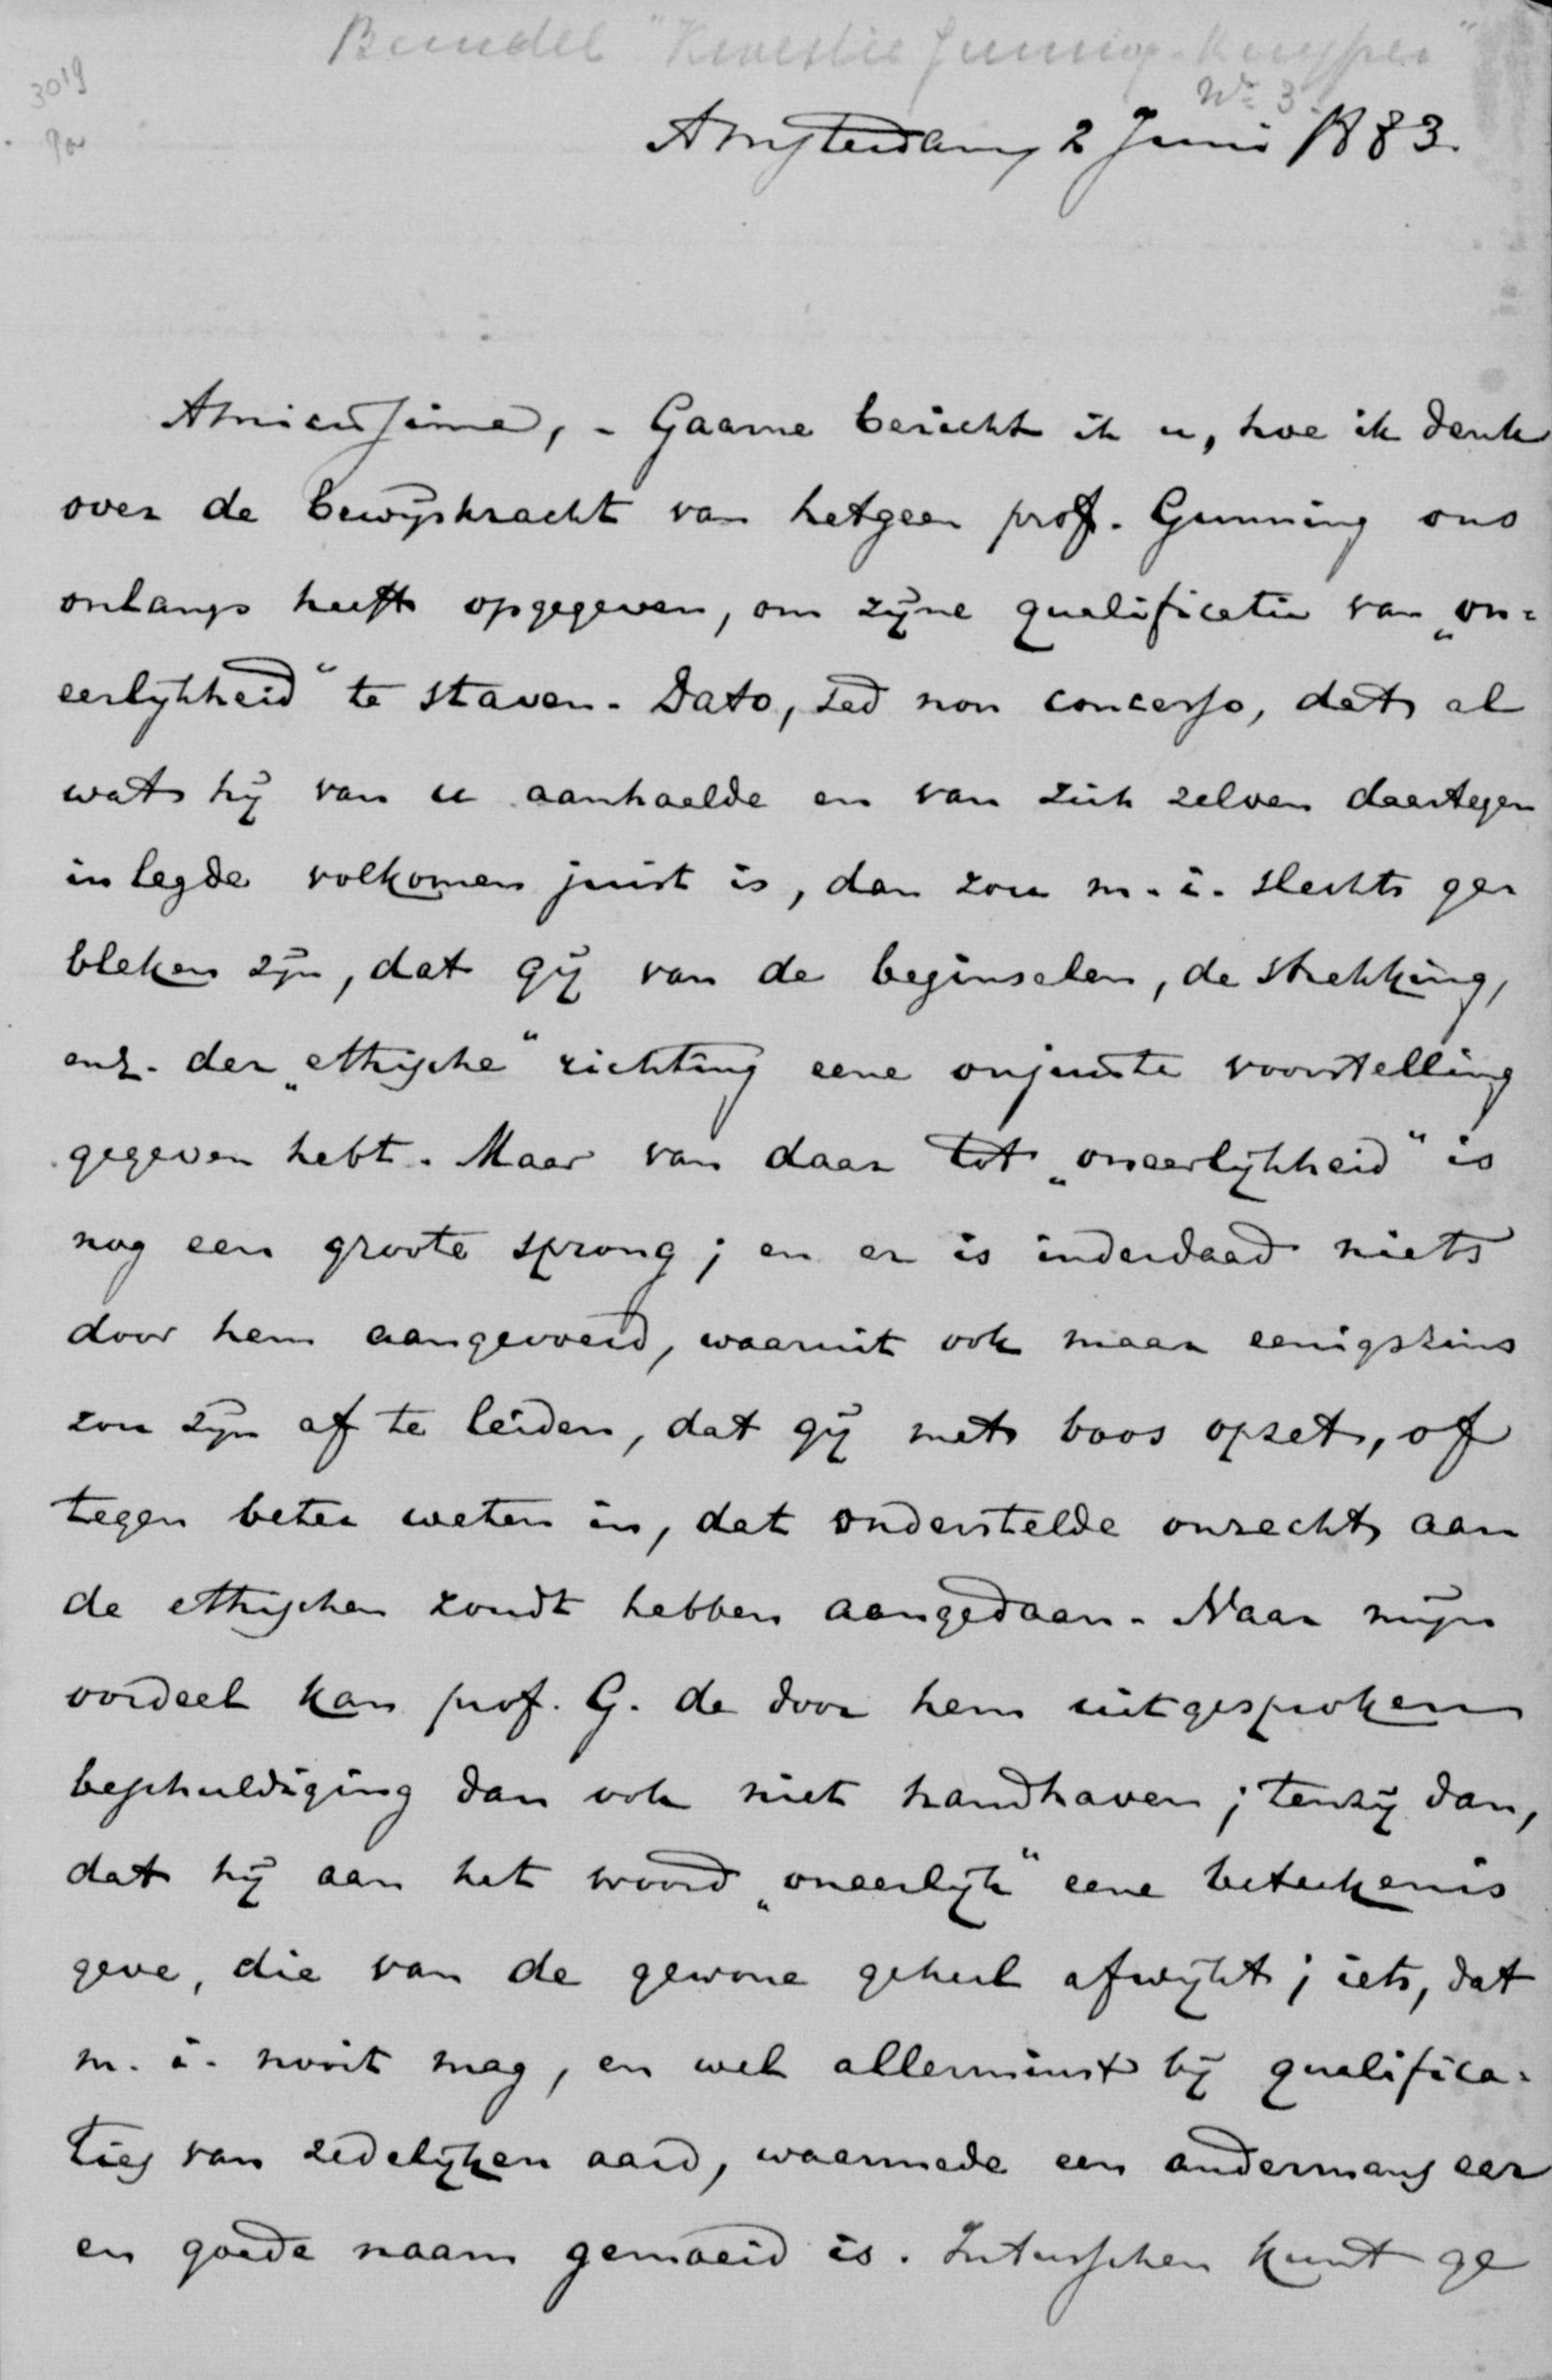 Bundel "Kwestie Gunning-Kuyper"
3019
No 3.
Amsterdam, 2 Juni 1883.
Amicissime, - Gaarne bericht ik u, hoe ik denk
over de bewijskracht van hetgeen prof. Gunning ons
onlangs heeft opgegeven, om zijne qualificatie van „on=
eerlijkheid" te staven. Dato, sed non concesso, dat al
wat hij van u aanhaalde en van zich zelven daartegen
in legde volkomen juist is, dan zou m. i. slechts ge=
bleken zijn, dat gij van de beginselen, de strekking,
enz. der „ethische" richting eene onjuiste voorstelling
gegeven hebt. Maar van daar tot „oneerlijkheid" is
nog een groote sprong; en er is inderdaad niets
door hem aangevoerd, waaruit ook maar eenigszins
zou zijn af te leiden, dat gij met boos opzet, of
tegen beter weten in, dat onderstelde onrecht aan
de ethischen zoudt hebben aangedaan. Naar mijn
oordeel kan prof. G. de door hem uitgesproken
beschuldiging dan ook niet handhaven; tenzij dan,
dat hij aan het woord „oneerlijk" eene beteekenis
geve, die van de gewone geheel afwijkt; iets, dat
m. i. nooit mag, en wel allerminst bij qualifica=
ties van zedelijken aard, waarmede een andermans eer
en goede naam gemoeid is. Intusschen kunt ge